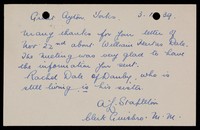 Great Ayton Yorks. 3-12-34.
Many thanks for your letter of
Nov 22nd about William Dale.
The meeting was very glad to have
the information you sent.
Rachel Dale of Danby, who is
still living is his sister
A. J. Stapleton
Clerk Guisbro. M.M.